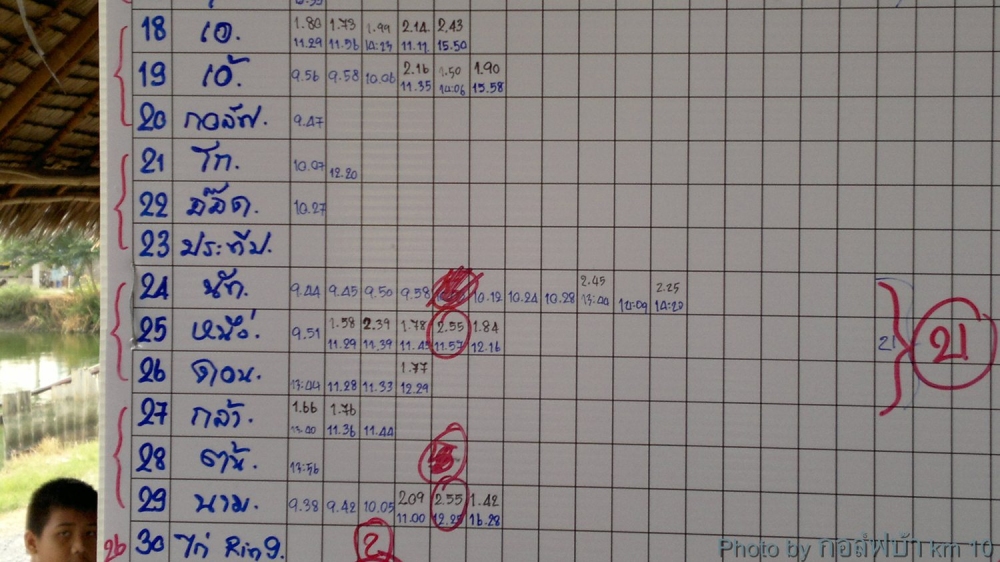 18 เอ. 1.80 1.73 1.99 2.14 2.43
11.29 11.56 14:23 11.11 15.50
19 เอ้. 9.56 9.58 10.06 2.16 1.50 1.90
11.35 14:06 15.58
20 9.47
21 โก. 10.07 12.20
22 อ๊อด. 10.27
23 ประทีป.
24 นัท. 9.44 9.45 9.50 9.58 10.12 10.24 10.28 2.45 2.25
13:00 14:09 14:20
25 หนึ่ง. 9.51 1.58 2.39 1.78 2.55 1.84
11.29 11.39 11.45 11.57 12.16
21
21
26 ดอน. 1.77
13:44 11.28 11.33 12.29
27 กล้า. 1.66 1.76
13:40 11.36 11.44
28 ต้น. 13:56
29 นาม. 9.38 9.42 10.05 2.09 2.55 1.42
11.00 12.25 16.28
26 30 ไก่ Ring. 2
Photo by กอล์ฟบ้า km 10